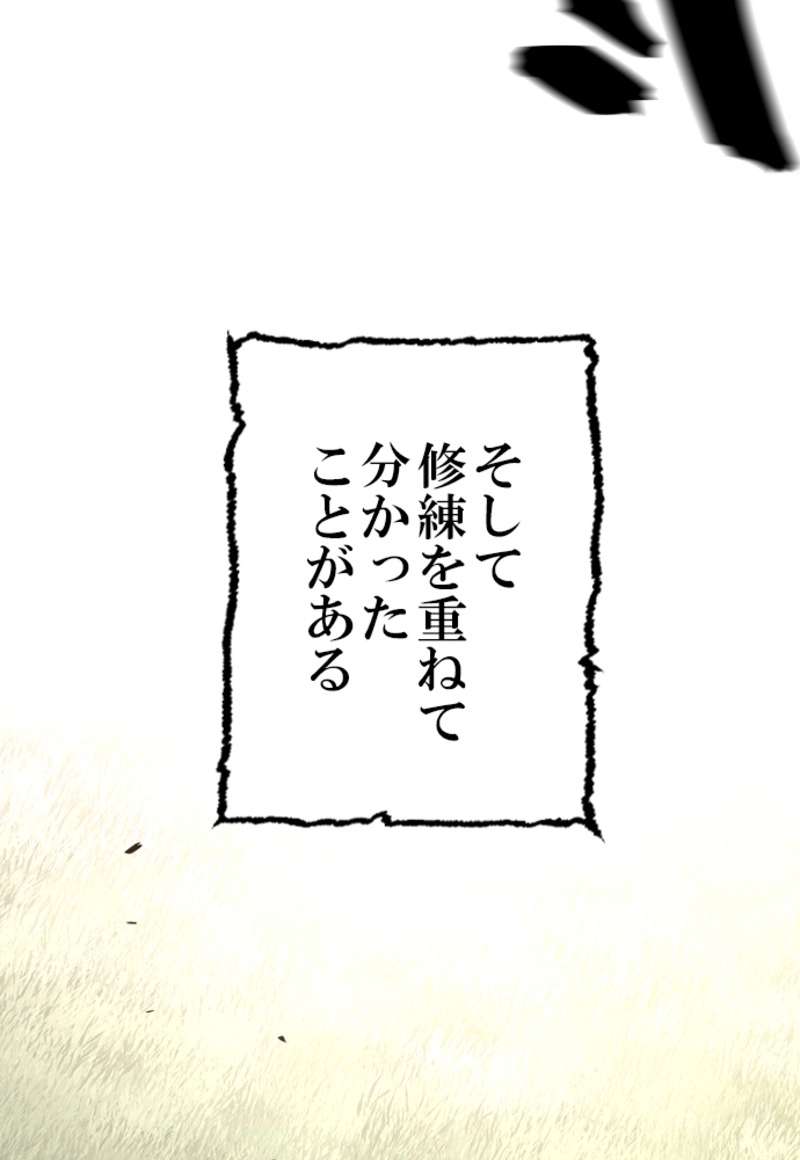 そして
修練を重ねて
分かった
ことがある